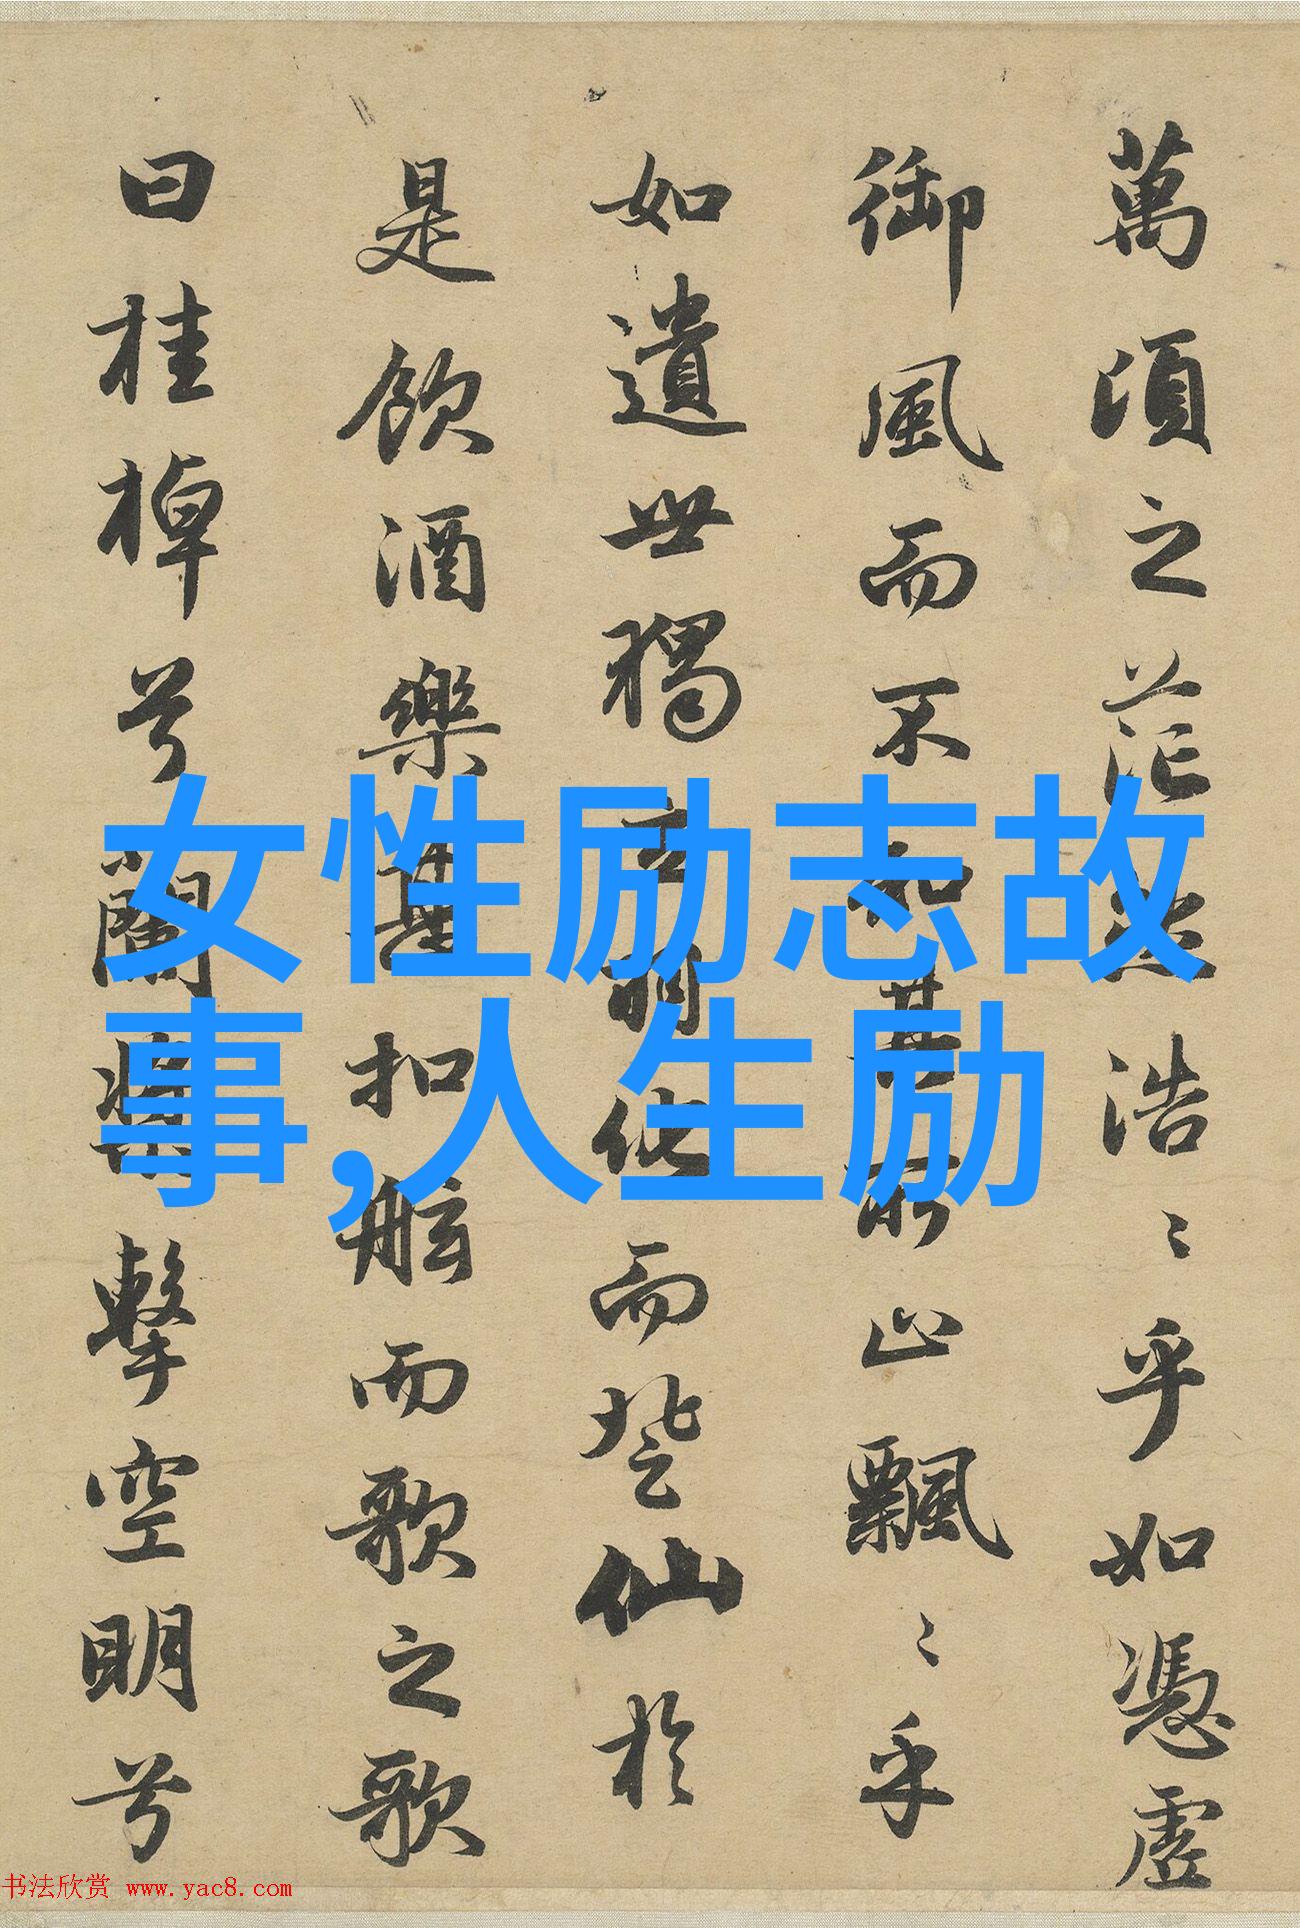 萬頃之茫然浩〻乎如憑虛
御風而不知其所止飄〻乎
如遺世獨立羽化而登仙於
是飲酒樂甚扣舷而歌之歌
曰桂棹兮蘭槳擊空明兮
女性励志故
事,人生励
书法欣赏 www.yac8.com